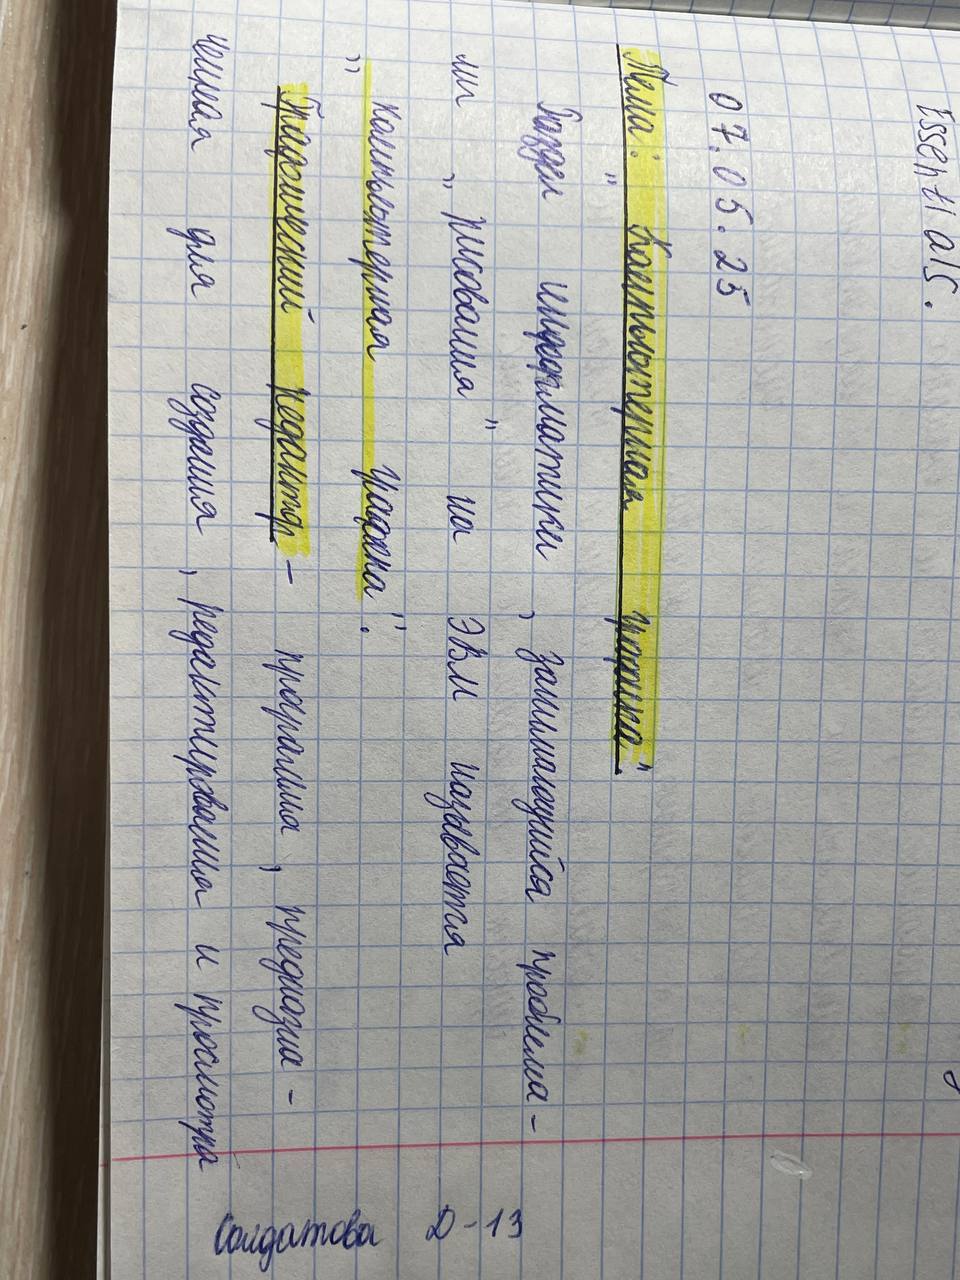 Essentials.
07.05.25
Тема: "Компьютерная графика"
Раздел информатики, занимающийся проблема-
ми "рисования" на ЭВМ называется
"компьютерная графика".
Графический редактор - программа, предназна-
чения для создания, редактирования и просмотра
Солдатова Д-13